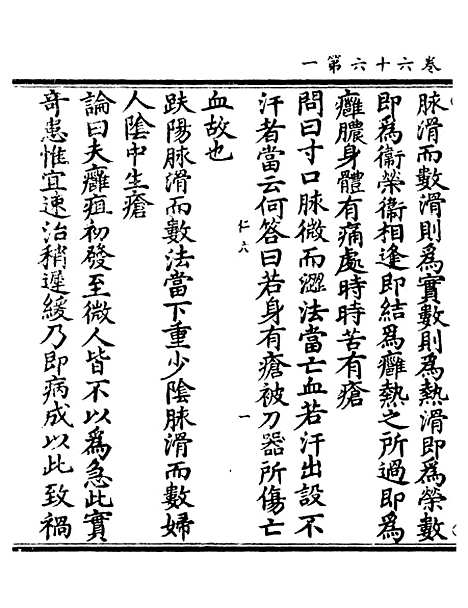 卷六十六第一
脉滑而數滑則為實數則為熱滑即為榮數
即為衞榮衞相逢即結為癰熱之所過即為
癰膿身體有痛處時時苦有瘡
問曰寸口脉微而澀法當亡血若汗出設不
汗者當云何答曰若身有瘡被刀器所傷亡
仁六 一
血故也
趺陽脉滑而數法當下重少陰脉滑而數婦
人陰中生瘡
論曰夫癰疽初發至微人皆不以為急此實
奇患惟宜速治稍遲緩乃即病成以此致禍